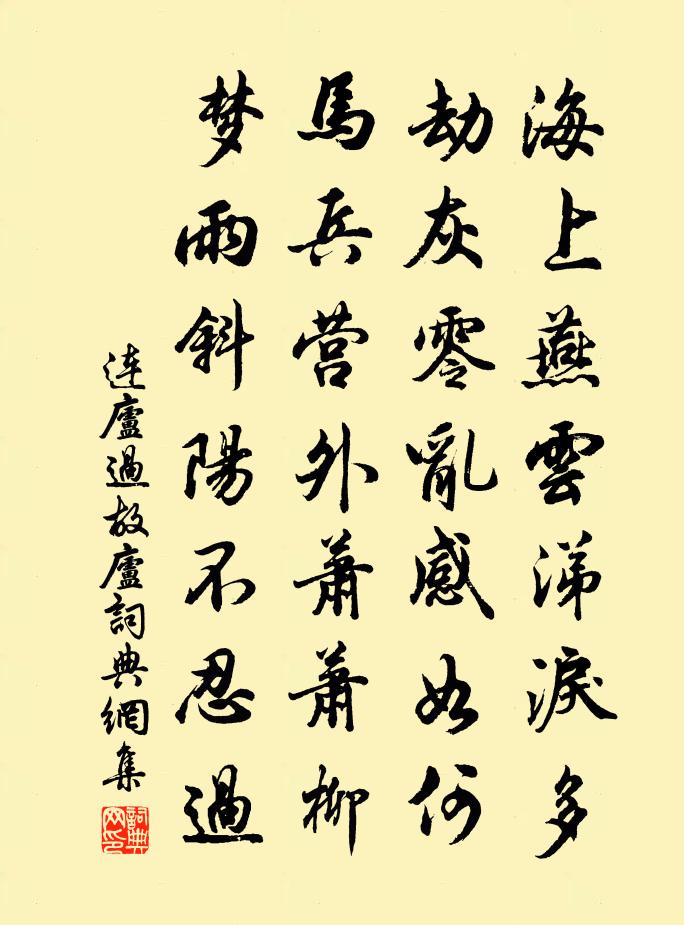 海上燕雲涕淚多
劫灰零亂感如何
馬兵营外萧萧柳
梦雨斜陽不忍過
連廬過故廬詞典網集
詞典网印